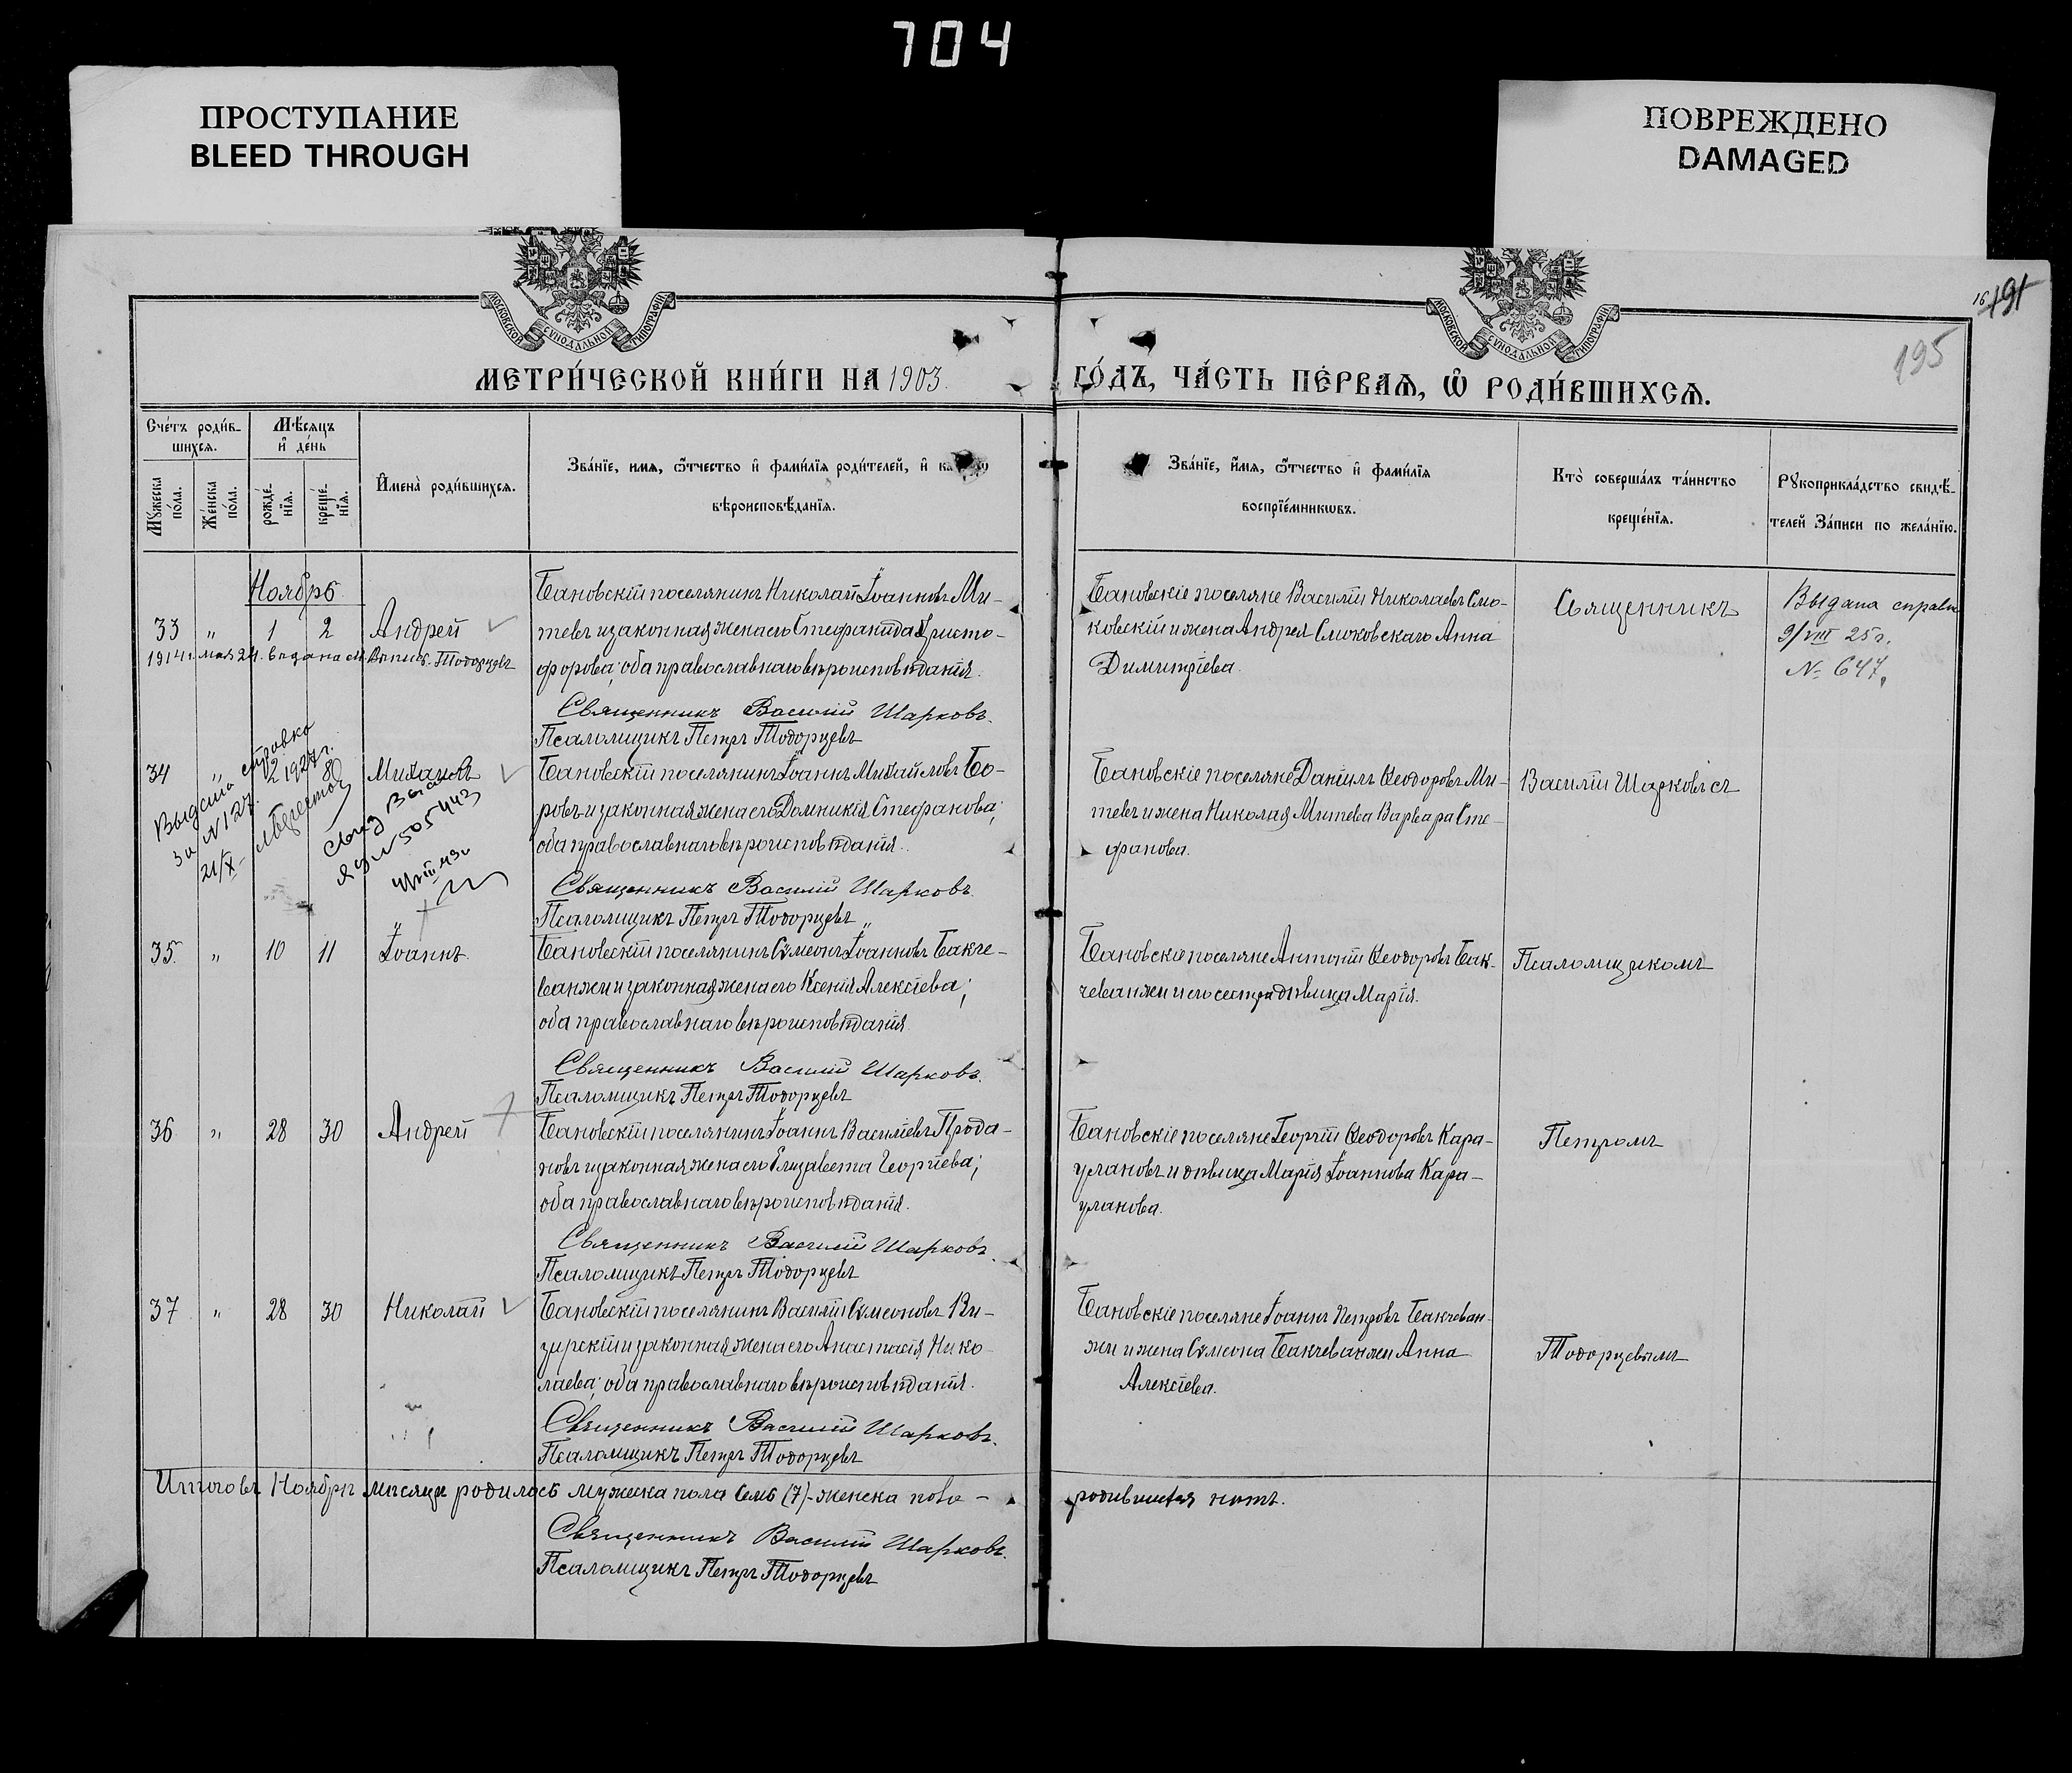 704
ПРОСТУПАНИЕ
BLEED THROUGH
ПОВРЕЖДЕНО
DAMAGED
МОСКОВСКОЙ СУНОДАЛЬНОЙ ТИПОГРАФІИ
МОСКОВСКОЙ СУНОДАЛЬНОЙ ТИПОГРАФІИ
195
МЕТРИ́ЧЕСКОЙ КНИ́ГИ НА 1903.
ГО́ДЪ, ЧА́СТЬ ПЕ́РВАѦ, Ѡ҆ РОДИ́ВШИХСѦ.
Сче́тъ роди́в-
шихсѧ.
Мꙋжеска по́ла.
Же́нска по́ла.
Мѣ́сѧцъ
и҆ де́нь
рожде́-
нїѧ.
креще́-
нїѧ.
И҆мена̀ роди́вшихсѧ.
Зва́нїе, имѧ, ѻ҆́тчество и҆ фами́лїѧ роди́телей, и҆
вѣроисповѣ́данїѧ.
Зва́нїе, и҆́мѧ, ѻ҆́тчество и҆ фами́лїѧ
воспрїе́мникѡвъ.
Кто̀ соверша́лъ та́инство
креще́нїѧ.
Рꙋкоприкла́дство свидѣ́-
телей За́писи по жела́нїю.
Ноябрь
33 " 1 2 Андрей
Бановскій поселянинъ Николай Іоанновъ Ми-
тевъ и законная жена его Стефанида Христо-
форова; оба православнаго вѣроисповѣданія.
1914 г. мая 24. выдана м. Выпись. Тодорцевъ
Священникъ Василій Шарковъ.
Псаломщикъ Петръ Тодорцевъ
Бановскіе поселяне Василій Николаевъ Смо-
ковскій и жена Андрея Смоковскаго Анна
Димитріева.
Священникъ
Выдана справк
9/VIII 25 г.
№ 647.
34 " Михаилъ
Бановскій поселянинъ Іоаннъ Михайловъ Бо-
ровъ и законная жена его Домникія Стефанова;
оба православнаго вѣроисповѣданія.
Выдана справка
за № 127.
21/X 1927 г.
ЯЭ № 505443
Священникъ Василій Шарковъ.
Псаломщикъ Петръ Тодорцевъ
Бановскіе поселяне Даніилъ Ѳеодоровъ Ми-
тевъ и жена Николая Митева Варвара Сте-
фанова.
Василій Шарковъ съ
35. " 10 11 Іоаннъ.
Бановскій поселянинъ Сѵмеонъ Іоанновъ Бакче-
ванжи и законная жена его Ксенія Алексіева;
оба православнаго вѣроисповѣданія
Священникъ Василій Шарковъ.
Псаломщикъ Петръ Тодорцевъ
Бановскіе поселяне Антоній Ѳеодоровъ Бак-
чеванжи и его сестра дѣвица Марія.
Псаломщикомъ
36 " 28 30 Андрей
Бановскій поселянинъ Іоаннъ Василіевъ Прода-
новъ и законная жена его Елизавета Георгіева;
оба православнаго вѣроисповѣданія.
Священникъ Василій Шарковъ.
Псаломщикъ Петръ Тодорцевъ
Бановскіе поселяне Георгій Ѳеодоровъ Кара-
улановъ и дѣвица Марія Іоаннова Кара-
уланова.
Петромъ
37 " 28 30 Николай
Бановскій поселянинъ Василій Сѵмеоновъ Ви-
зирскій и законная жена его Анастасія Нико-
лаева; оба православнаго вѣроисповѣданія.
Священникъ Василій Шарковъ.
Псаломщикъ Петръ Тодорцевъ
Бановскіе поселяне Іоаннъ Петровъ Бакчеван-
жи и жена Сѵмеона Бакчеванжи Анна
Алексіева.
Тодорцевымъ
Итого въ Ноябрѣ мѣсяцѣ родилось мужеска пола семь (7) - женска пола -
родившихся нѣтъ.
Священникъ Василій Шарковъ.
Псаломщикъ Петръ Тодорцевъ